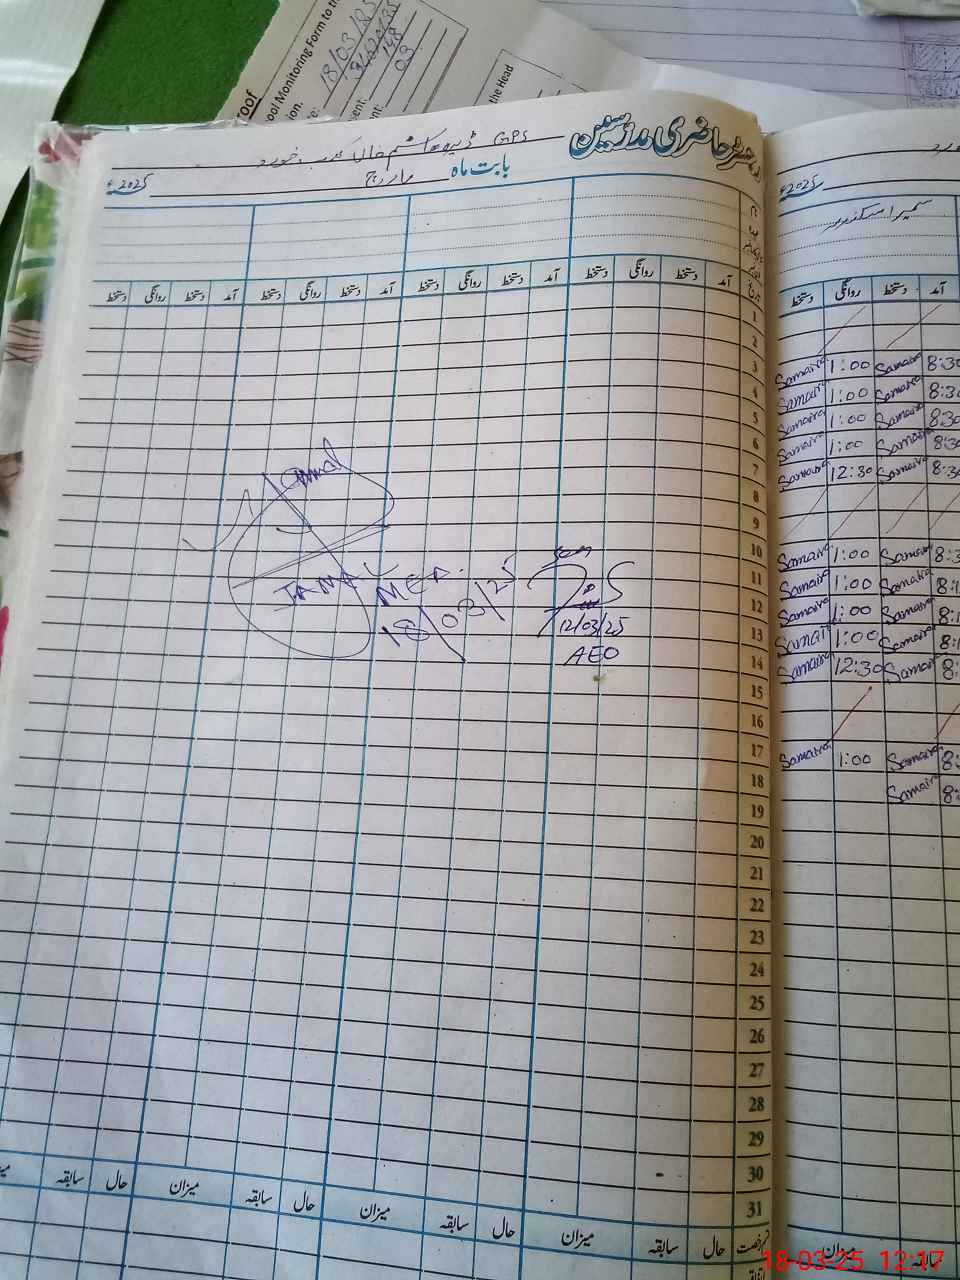 18/03/25
ool Monitoring Form to the
148
03
the Head
رجسٹر حاضری مدرسین
GPS
بابت ماہ مارچ
2025ء
2025ء
سمیرا سکندر
آمد دستخط روانگی دستخط آمد دستخط روانگی دستخط آمد دستخط روانگی دستخط آمد دستخط روانگی دستخط
آمد دستخط روانگی دستخط
1
2
3 8:30 Samaira 1:00 Samaira
4 8:30 Samaira 1:00 Samaira
5 8:30 Samaira 1:00 Samaira
6 8:30 Samaira 1:00 Samaira
7 8:30 Samaira 12:30 Samaira
8
9
10 Samaira 1:00 Samaira
11 Samaira 1:00 Samaira
12 Samaira 1:00 Samaira
13 Samaira 1:00 Samaira
14 Samaira 12:30 Samaira
15
16
17 Samaira 1:00 Samaira
18 Samaira
19
20
21
22
23
24
25
26
27
28
29
30
31
JAMAL
MEA.
18/03/25
12/03/25
AEO
حال سابقہ میزان حال سابقہ میزان حال سابقہ میزان حال سابقہ
میزان سابقہ
18-03-25 12:17